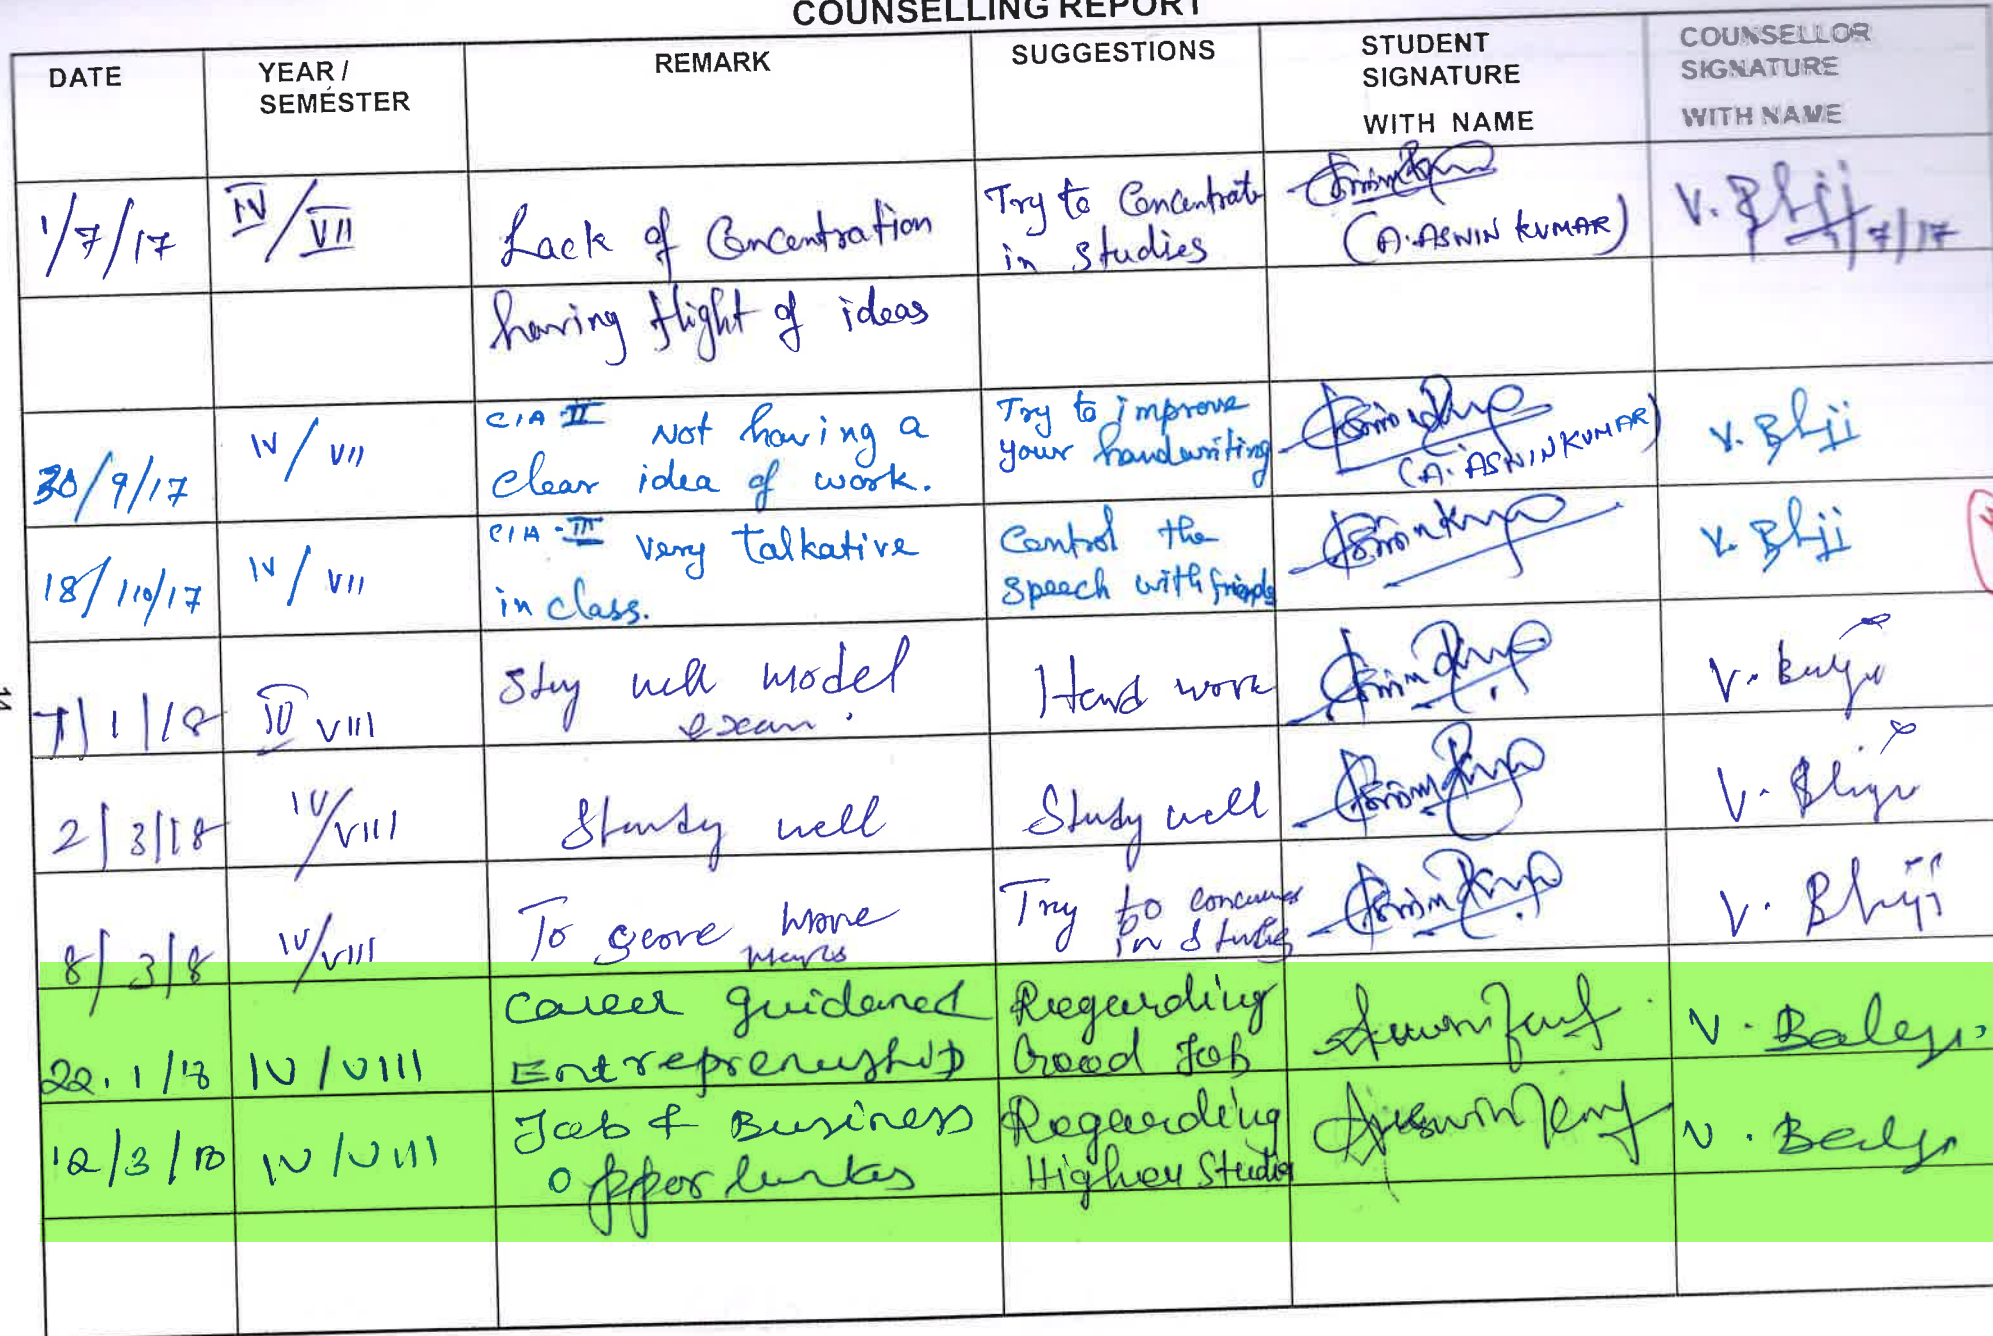 COUNSELLING REPORT
DATE YEAR / SEMESTER REMARK SUGGESTIONS STUDENT SIGNATURE WITH NAME COUNSELLOR SIGNATURE WITH NAME
1/7/17 IV/VII Lack of Concentration Try to Concentrate in studies (A. ASWIN KUMAR) V. 1/7/17
having flight of ideas
30/9/17 IV/VII CIA II Not having a clear idea of work. Try to improve your handwriting (A. ASWIN KUMAR) V.
18/10/17 IV/VII CIA-III very talkative in class. Control the speech with friends V.
7/1/18 IV VIII well model exam. Hard work V.
2/3/18 IV/VIII Study well Study well V.
8/3/8 IV/VIII To score more marks Try to in V.
22.1/18 IV/VIII Career guidance Entrepreneurship Regarding Good Job V.
12/3/18 IV/VIII Job & Business Regarding Higher Studies V.
14